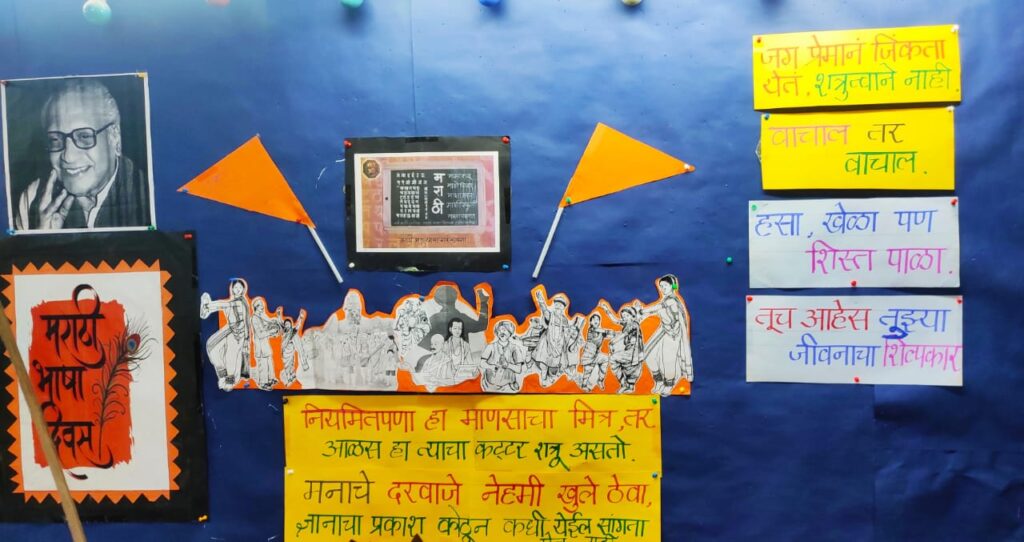 मराठी
भाषा
दिवस
म
रा
ठी
नियमितपणा हा माणसाचा मित्र, तर
आळस हा त्याचा कट्टर शत्रू असतो.
मनाचे दरवाजे नेहमी खुले ठेवा,
ज्ञानाचा प्रकाश कोठून कधी येईल सांगता
जग प्रेमानं जिंकता
येतं, शत्रुत्वाने नाही.
वाचाल तर
वाचाल.
हसा, खेळा पण
शिस्त पाळा.
तूच आहेस तुझ्या
जीवनाचा शिल्पकार